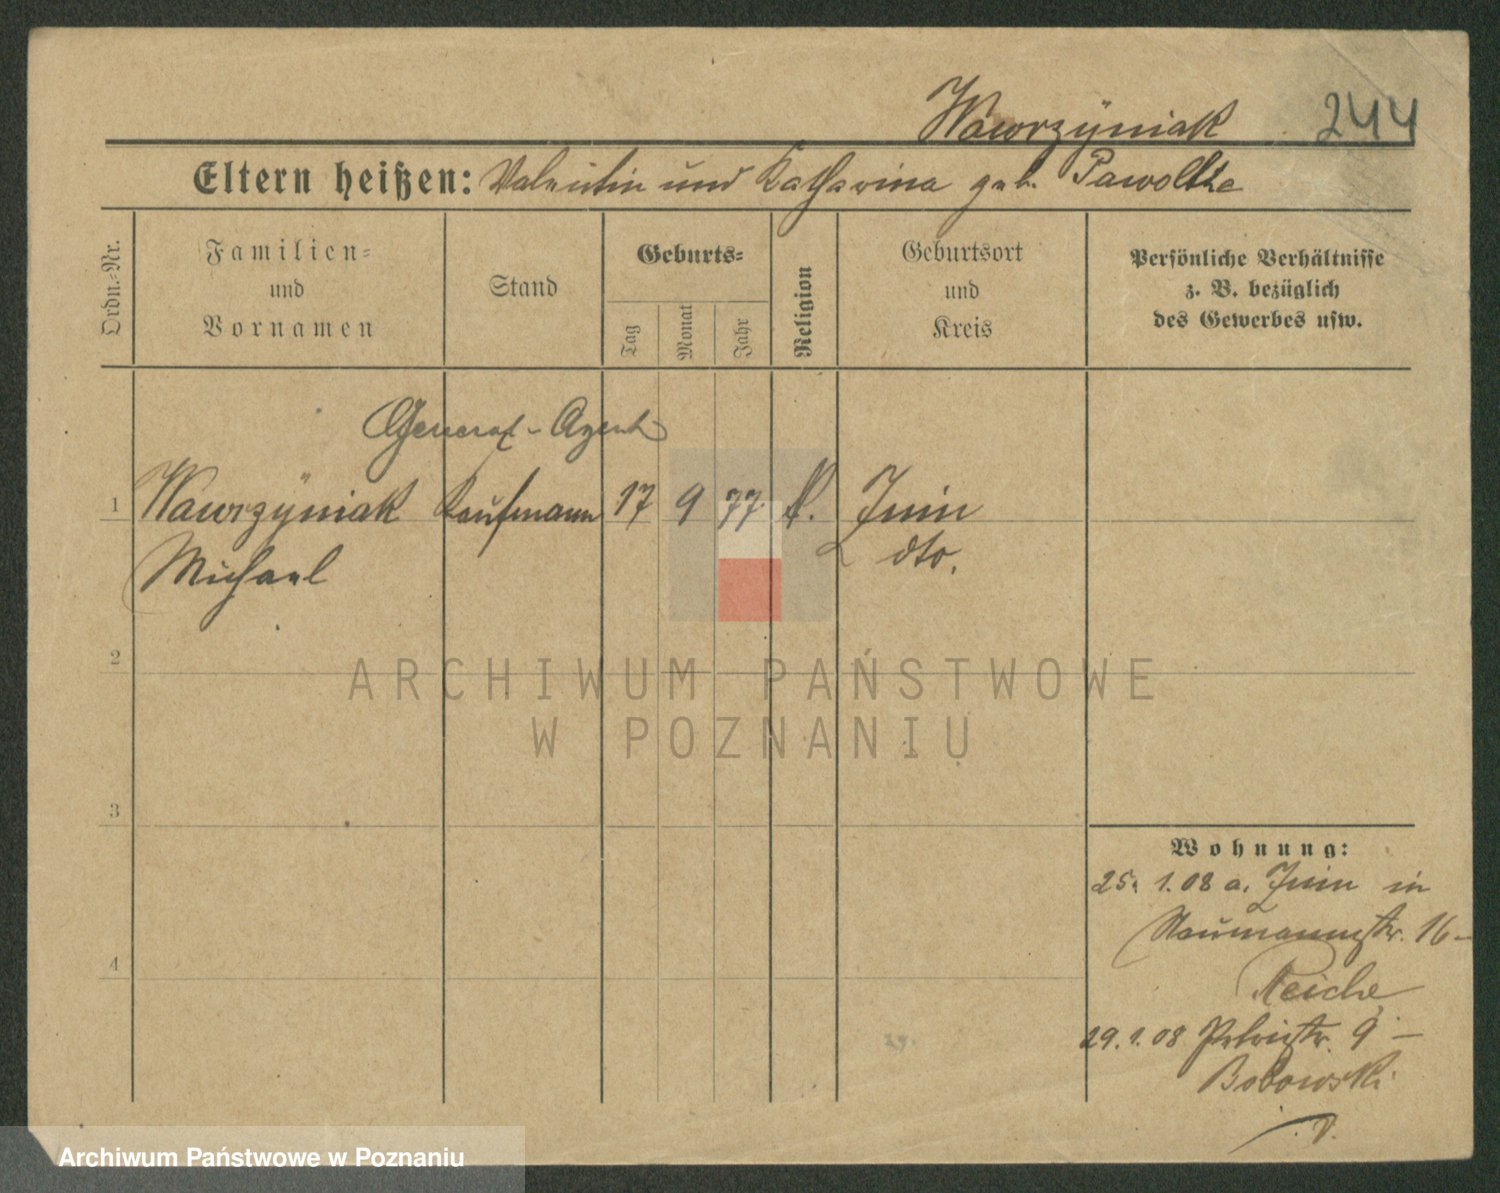 Wawrzÿniak 244
Eltern heißen: Valentin und Katharina geb.
Ordn.-Nr.
Familien-
und
Vornamen
Stand
Geburts-
Tag
Monat
Jahr
Religion
Geburtsort
und
Kreis
Persönliche Verhältnisse
z. B. bezüglich
des Gewerbes usw.
General-Agent
1 Wawrzÿniak Kaufmann 17 9 77 k. Znin
Michael dto.
2
ARCHIWUM PAŃSTWOWE
W POZNANIU
3
Wohnung:
25. 1. 08 a. Znin in
Naumannstr. 16-
Reiche
4
29. 1. 08 Petristr. 9 -
Bobowski
Archiwum Państwowe w Poznaniu